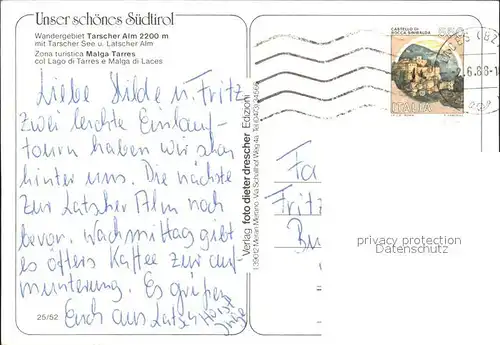 Unser schönes Südtirol
Wandergebiet Tarscher Alm 2200 m
mit Tarscher See u. Latscher Alm
Zona turistica Malga Tarres
col Lago di Tarres e Malga di Laces
Liebe Hilde u. Fritz
Zwei leichte Einlauf-
touren haben wir schon
hinter uns. Die nächste
zur Latscher Alm noch
bevor. Nachmittag gibt
es öfters Kaffee zur auf-
munterung. Es grüßen
Euch aus Latsch Horst
Inge
25/52
Verlag foto dieter drescher Edizioni
I 39012 Meran Merano · Via Schafhof Weg 4a · Tel
CASTELLO DI
ROCCA SINIBALDA
550
ITALIA
2.6.86-1
Fa
Fritz
Bu
privacy protection
Datenschutz